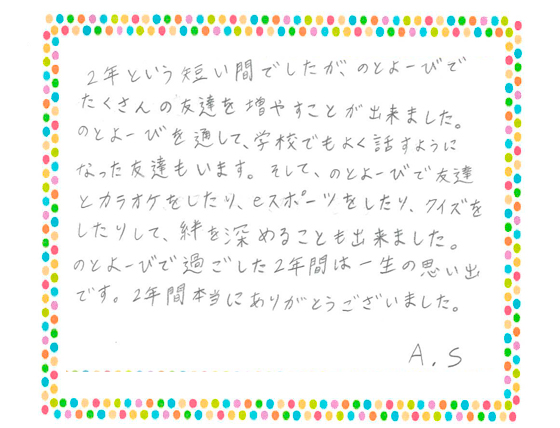 2年という短い間でしたが、のとよーびで
たくさんの友達を増やすことが出来ました。
のとよーびを通して、学校でもよく話すように
なった友達もいます。そして、のとよーびで友達
とカラオケをしたり、eスポーツをしたり、クイズを
したりして、絆を深めることも出来ました。
のとよーびで過ごした2年間は一生の思い出
です。2年間本当にありがとうございました。
A.S